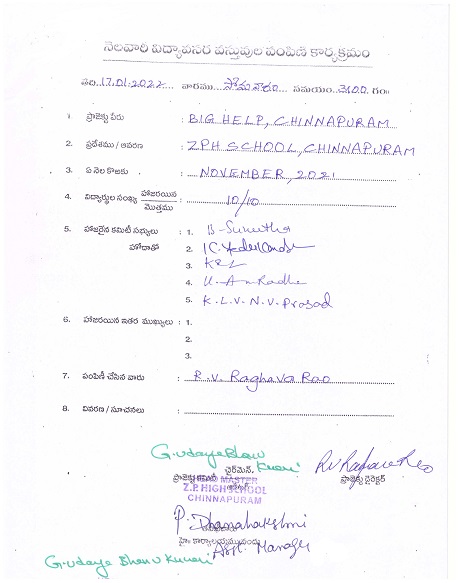 నెలవారి విద్యావసర వస్తువుల పంపిణి కార్యక్రమం
తేది. 17.01.2022 వారము సోమవారం సమయం 3:00 గం॥
1 ప్రాజెక్టు పేరు : BIG HELP, CHINNAPURAM
2. ప్రదేశము / ఆవరణ : ZPH SCHOOL, CHINNAPURAM
3. ఏ నెల కొఱకు : NOVEMBER, 2021
4. విద్యార్థుల సంఖ్య హాజరయిన / మొత్తము : 10/10
5. హాజరైన కమిటీ సభ్యులు : 1. B-Sunitha
హోదాతో 2.
3.
4. U. Anuradha
5. K.L.V.N.V. Prasad
6. హాజరయిన ఇతర ముఖ్యులు : 1.
2.
3.
7. పంపిణీ చేసిన వారు : R.V. Raghava Rao
8. వివరణ / సూచనలు :
G. udaya Bhanu Kumari RV Raghava Rao
ఛైర్మెన్,
ప్రాజెక్టు కమిటీ MASTER ప్రాజెక్టు డైరెక్టర్
Z.P. HIGH SCHOOL
CHINNAPURAM
P. Dhanalakshmi
హెూం కార్యాలయమునందు
Asst. Manager
G. udaya Bhanu Kumari